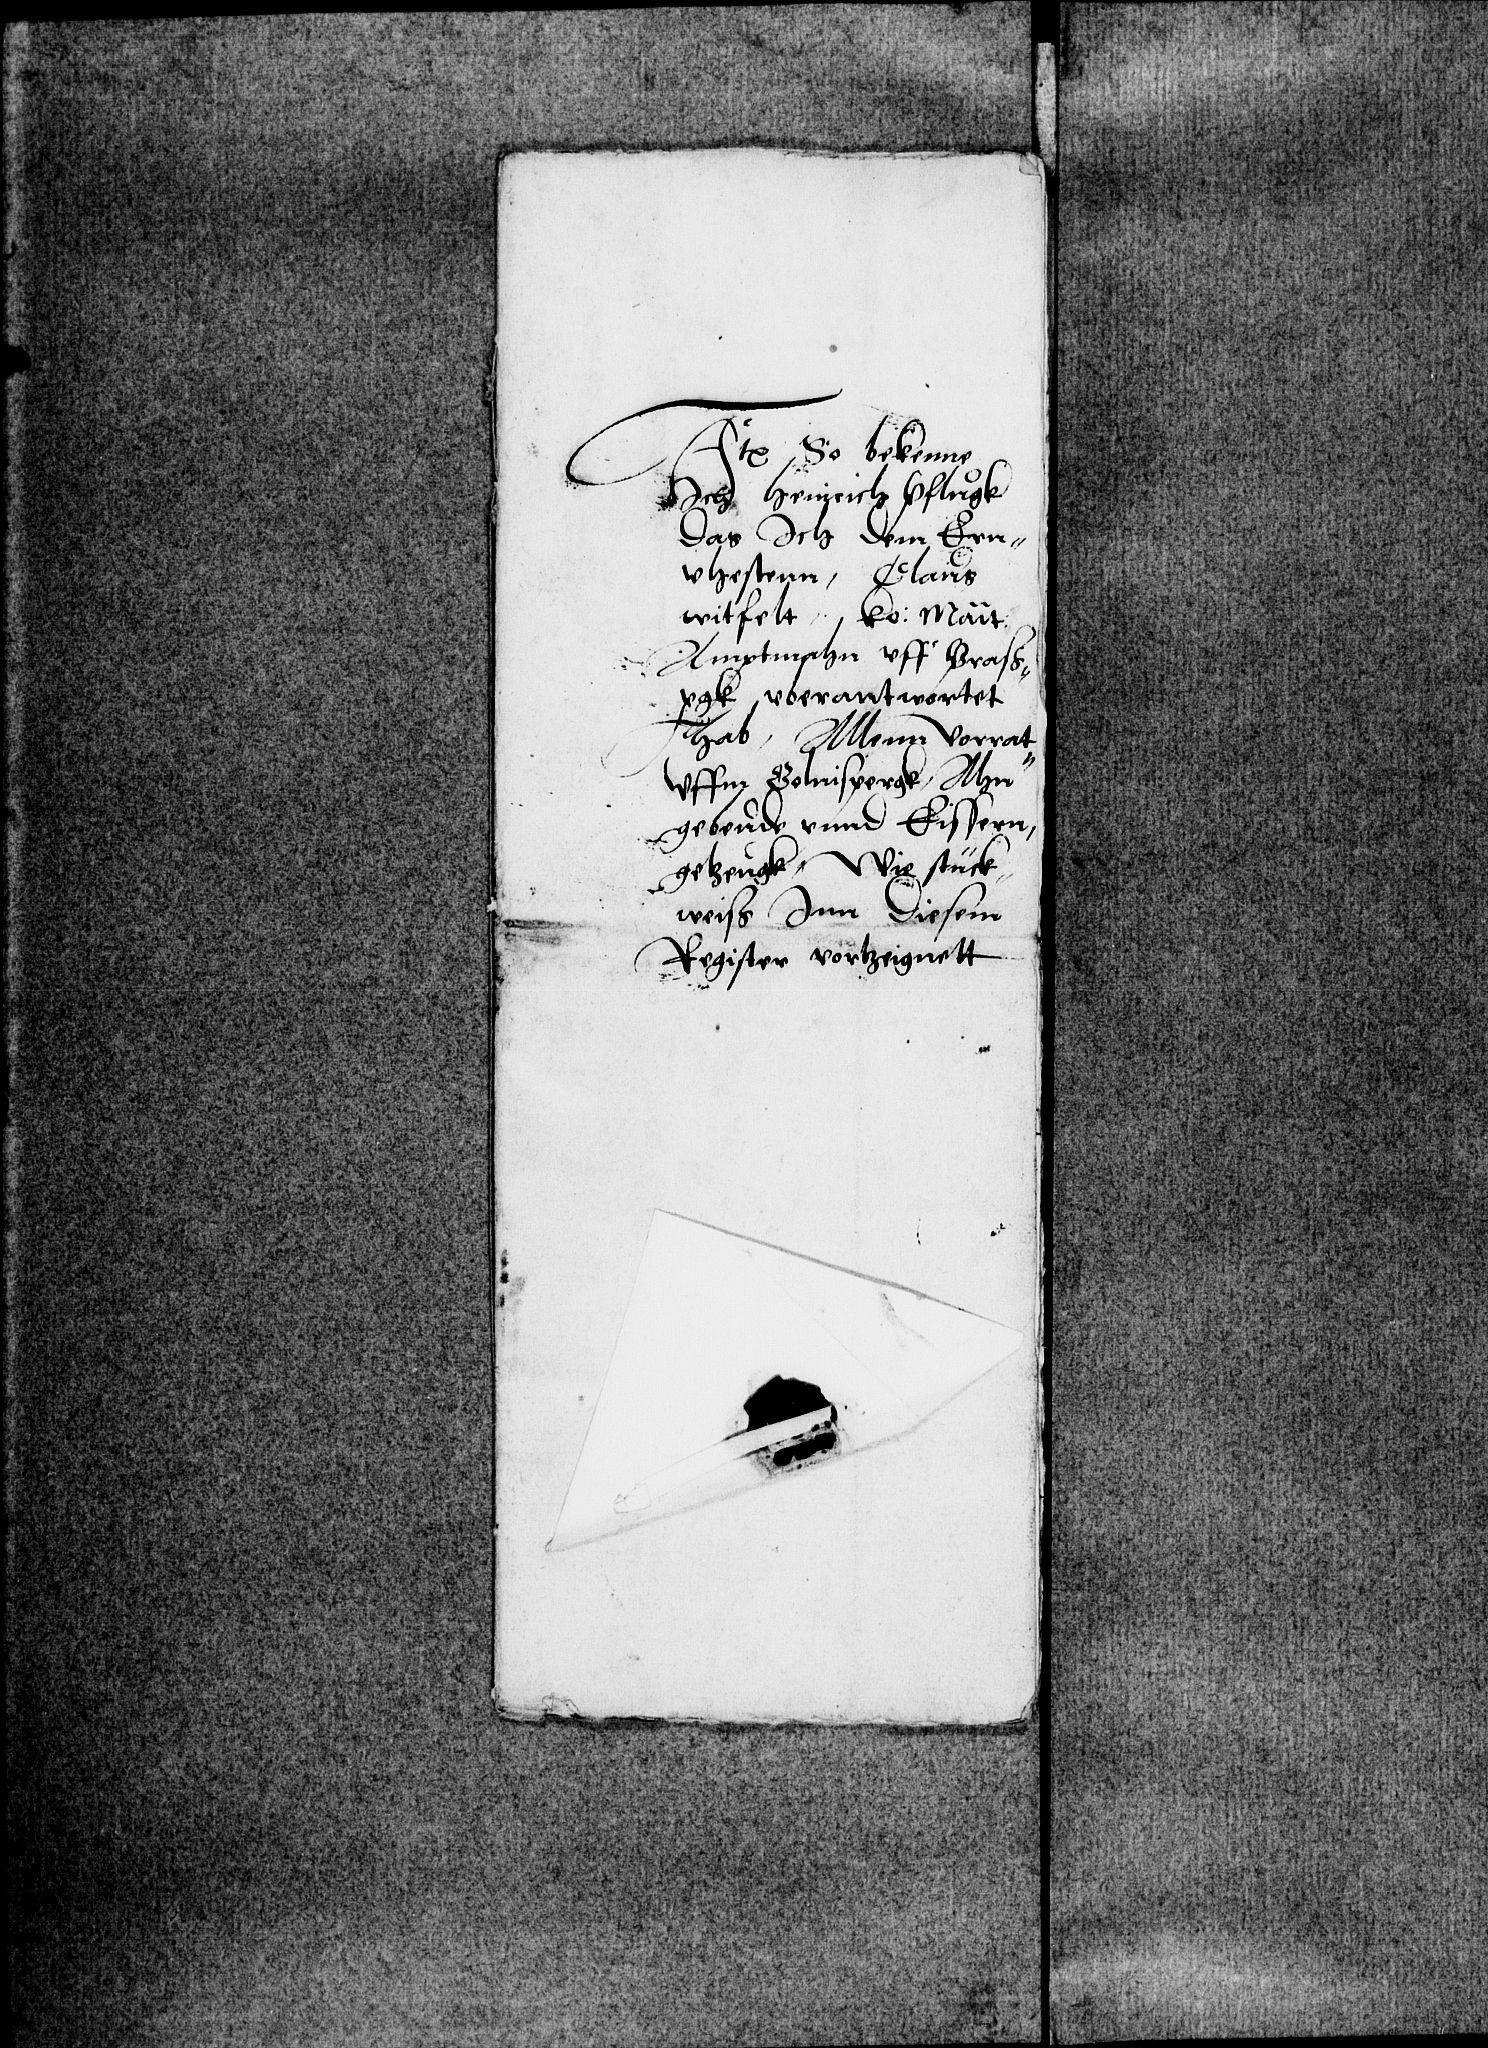 Itz So bekenne
Ich heinrich Pflugk
das Ich dem Ern=
vhestenn, Claus
witfelt, ko: Maĭt:
Amptmahn vff Brass=
pgk voerantwortet
hab, Allenn vorrat
Vffm Golnispergk, Ahn
gebeude vnnd Eissern,
getzeugk, Wie stuck=
weiss Inn diesem
Register vortzeignett